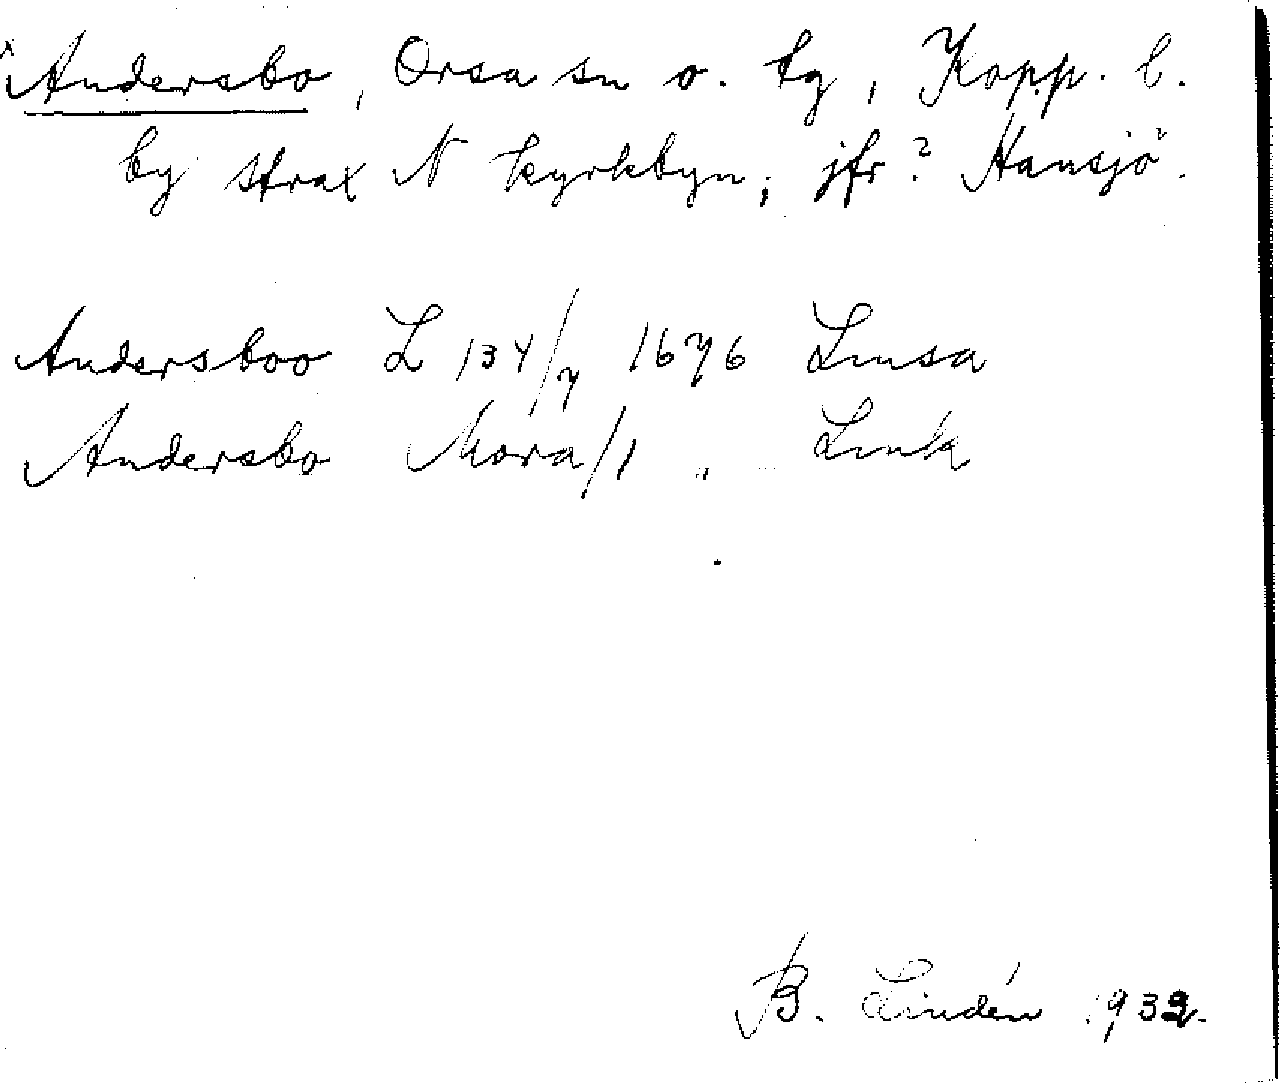 x Andersbo, Orsa sn o. tg, Kopp. l.
by strax N kyrkbyn; jfr? Hansjö?.
Andersboo L 134/7 1676 Lmsa
Andersbo Mora/1 " Lmk
B. Lindén 1932.